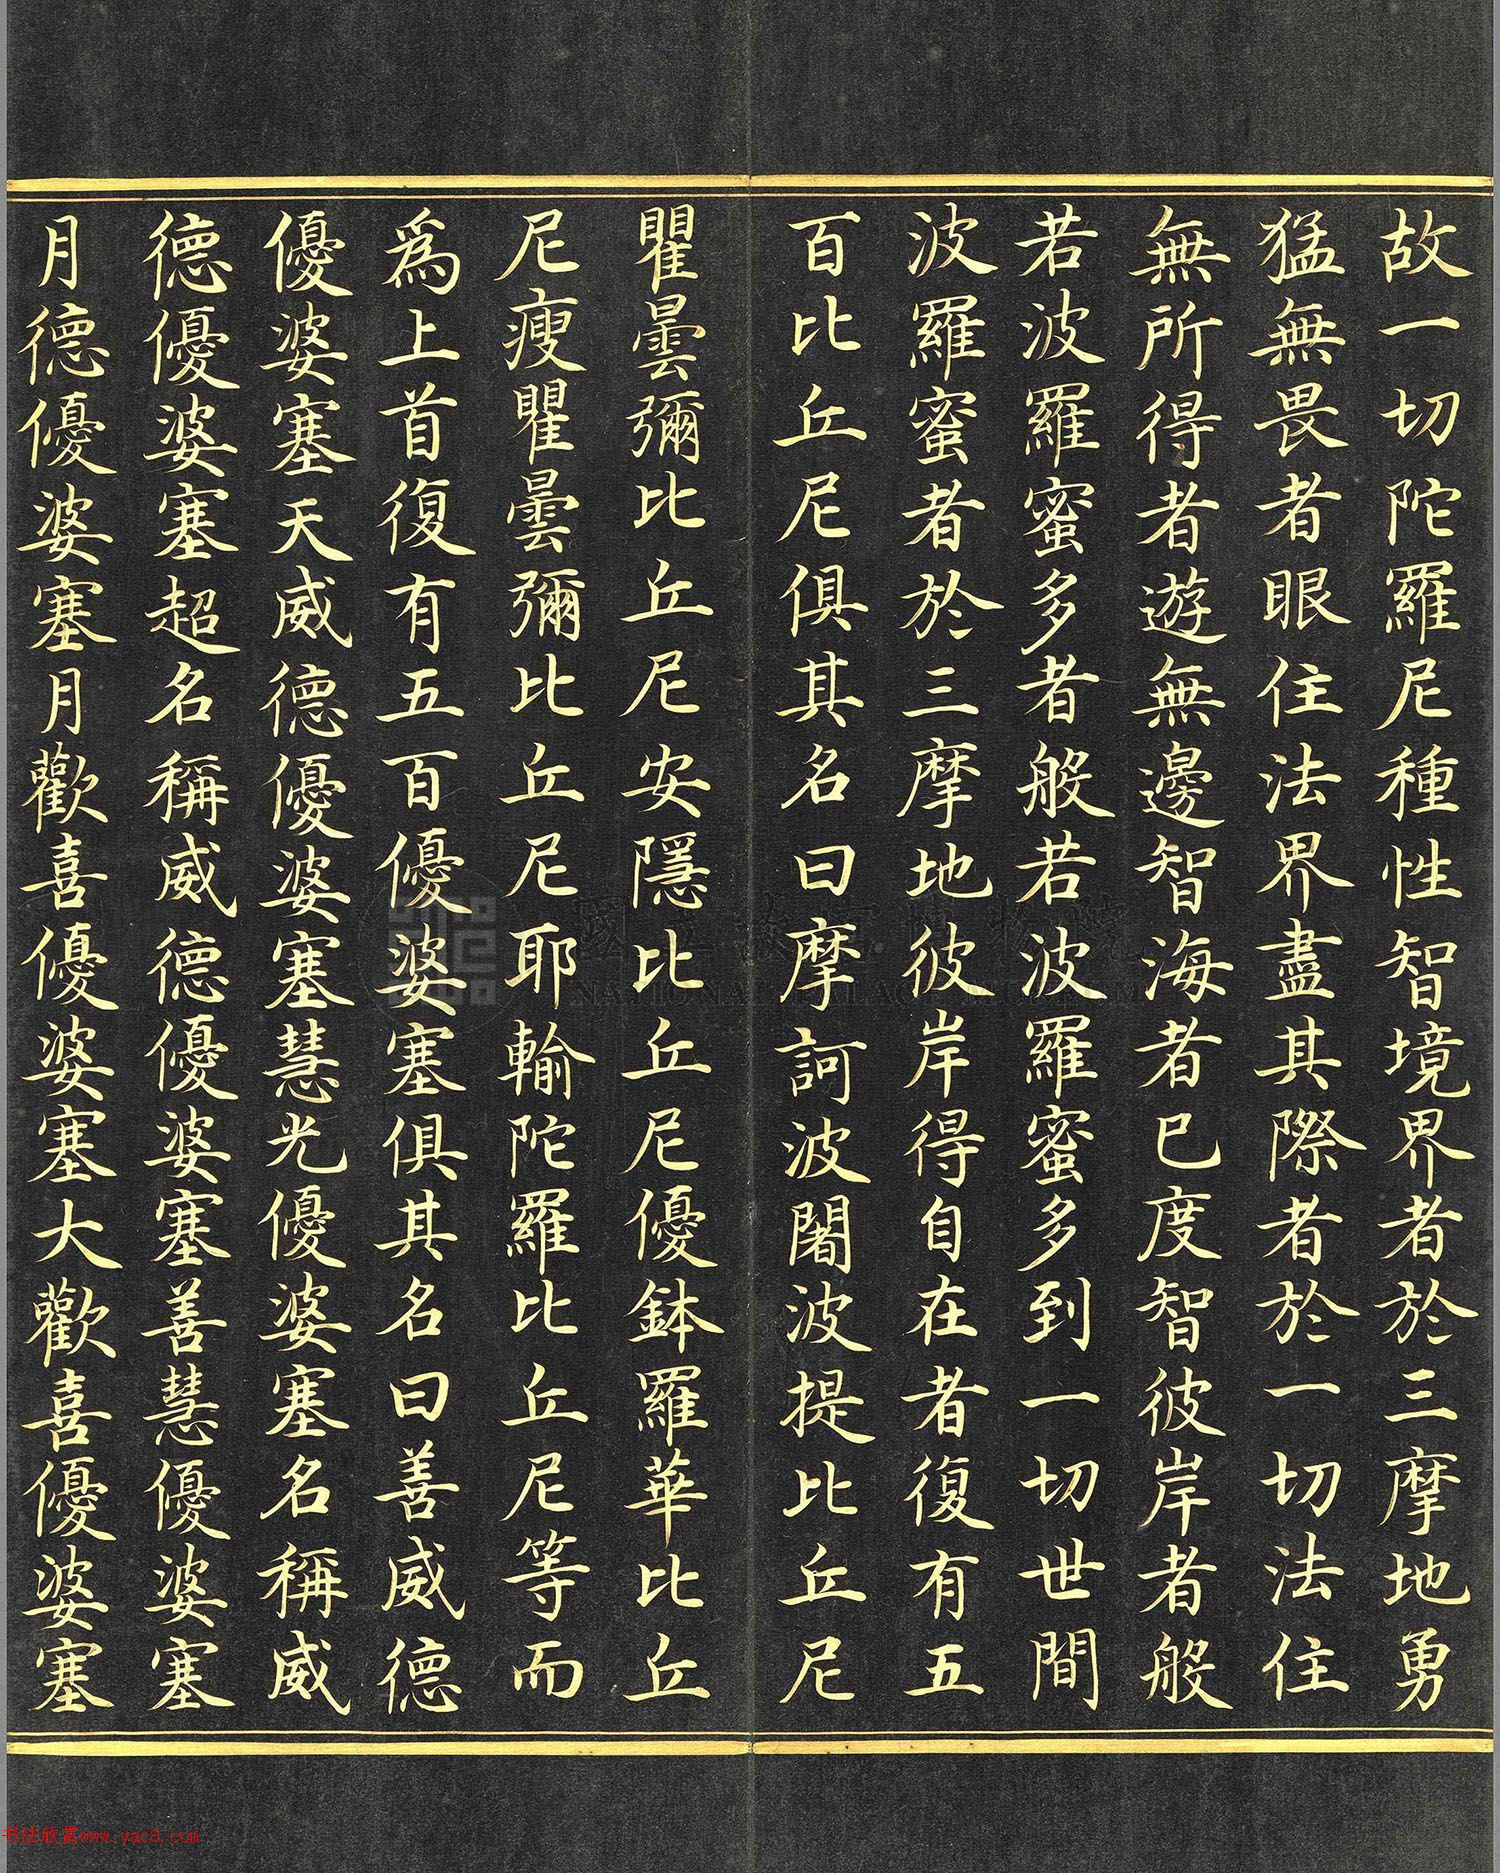 故一切陀羅尼種性智境界者於三摩地勇
猛無畏者眼住法界盡其際者於一切法住
無所得者遊無邊智海者已度智彼岸者般
若波羅蜜多者般若波羅蜜多到一切世間
波羅蜜者於三摩地彼岸得自在者復有五
百比丘尼俱其名曰摩訶波闍波提比丘尼
瞿曇彌比丘尼安隱比丘尼優鉢羅華比丘
尼瘦瞿曇彌比丘尼耶輸陀羅比丘尼等而
為上首復有五百優婆塞俱其名曰善威德
優婆塞天威德優婆塞慧光優婆塞名稱威
德優婆塞超名稱威德優婆塞善慧優婆塞
月德優婆塞月歡喜優婆塞大歡喜優婆塞
NATIONAL PALACE MUSEUM
书法欣赏www.yac8.com